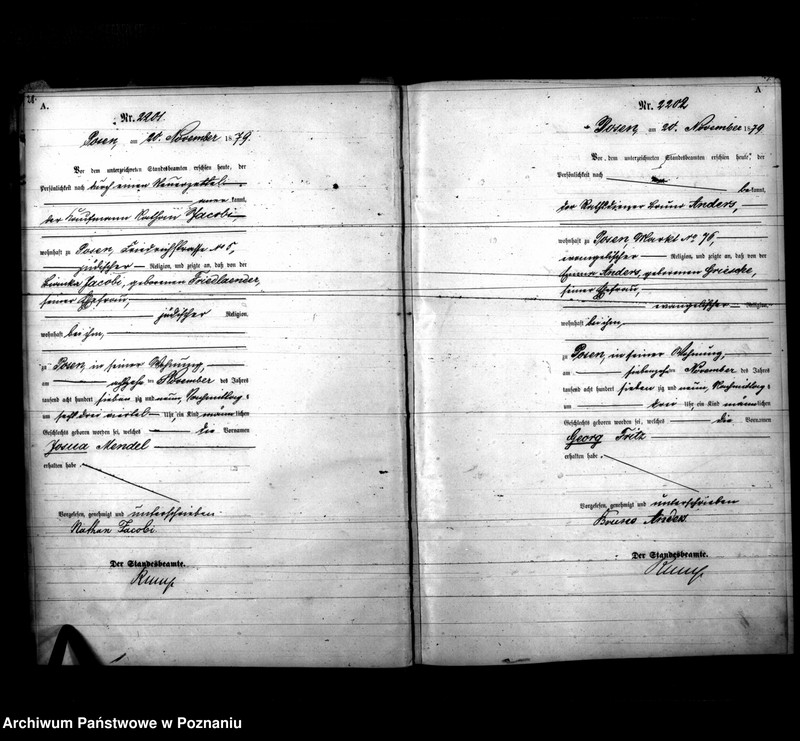 A.
Nr. 2201.
Posen, am 20. November 1879.
Vor dem unterzeichneten Standesbeamten erschien heute, der
Persönlichkeit nach durch einen Steuerzettel
aner kannt,
der Kaufmann Nathan Jacobi,
wohnhaft zu Posen, Friedrichstrasse No 5,
jüdischer Religion, und zeigte an, daß von der
Bianka Jacobi, geborenen Friedlaender,
seiner Ehefrau,
jüdischer Religion,
wohnhaft bei ihm,
zu Posen, in seiner Wohnung,
am November des Jahres
tausend acht hundert sieben zig und neun, Nachmittag s
um sechs drei viertel Uhr, ein Kind männlichen
Geschlechts geboren worden sei, welches die Vornamen
Josua Mendel
erhalten habe.
Vorgelesen, genehmigt und unterschrieben
Nathan Jacobi.
Der Standesbeamte.
A
Nr. 2202
Posen, am 20. November 1879
Vor dem unterzeichneten Standesbeamten erschien heute, der
Persönlichkeit nach
be kannt,
der Rathsdiener Bruno Anders,
wohnhaft zu Posen, Markt No 76,
evangelischer Religion, und zeigte an, daß von der
Anders, geborenen
seiner Ehefrau,
evangelischer Religion,
wohnhaft bei ihm,
zu Posen, in seiner Wohnung,
am siebenzehn ten November des Jahres
tausend acht hundert sieben zig und neun, Nachmittag s
um drei Uhr, ein Kind männlichen
Geschlechts geboren worden sei, welches die Vornamen
Georg Fritz
erhalten habe.
Vorgelesen, genehmigt und unterschrieben
Bruno Anders
Der Standesbeamte.
Archiwum Państwowe w Poznaniu